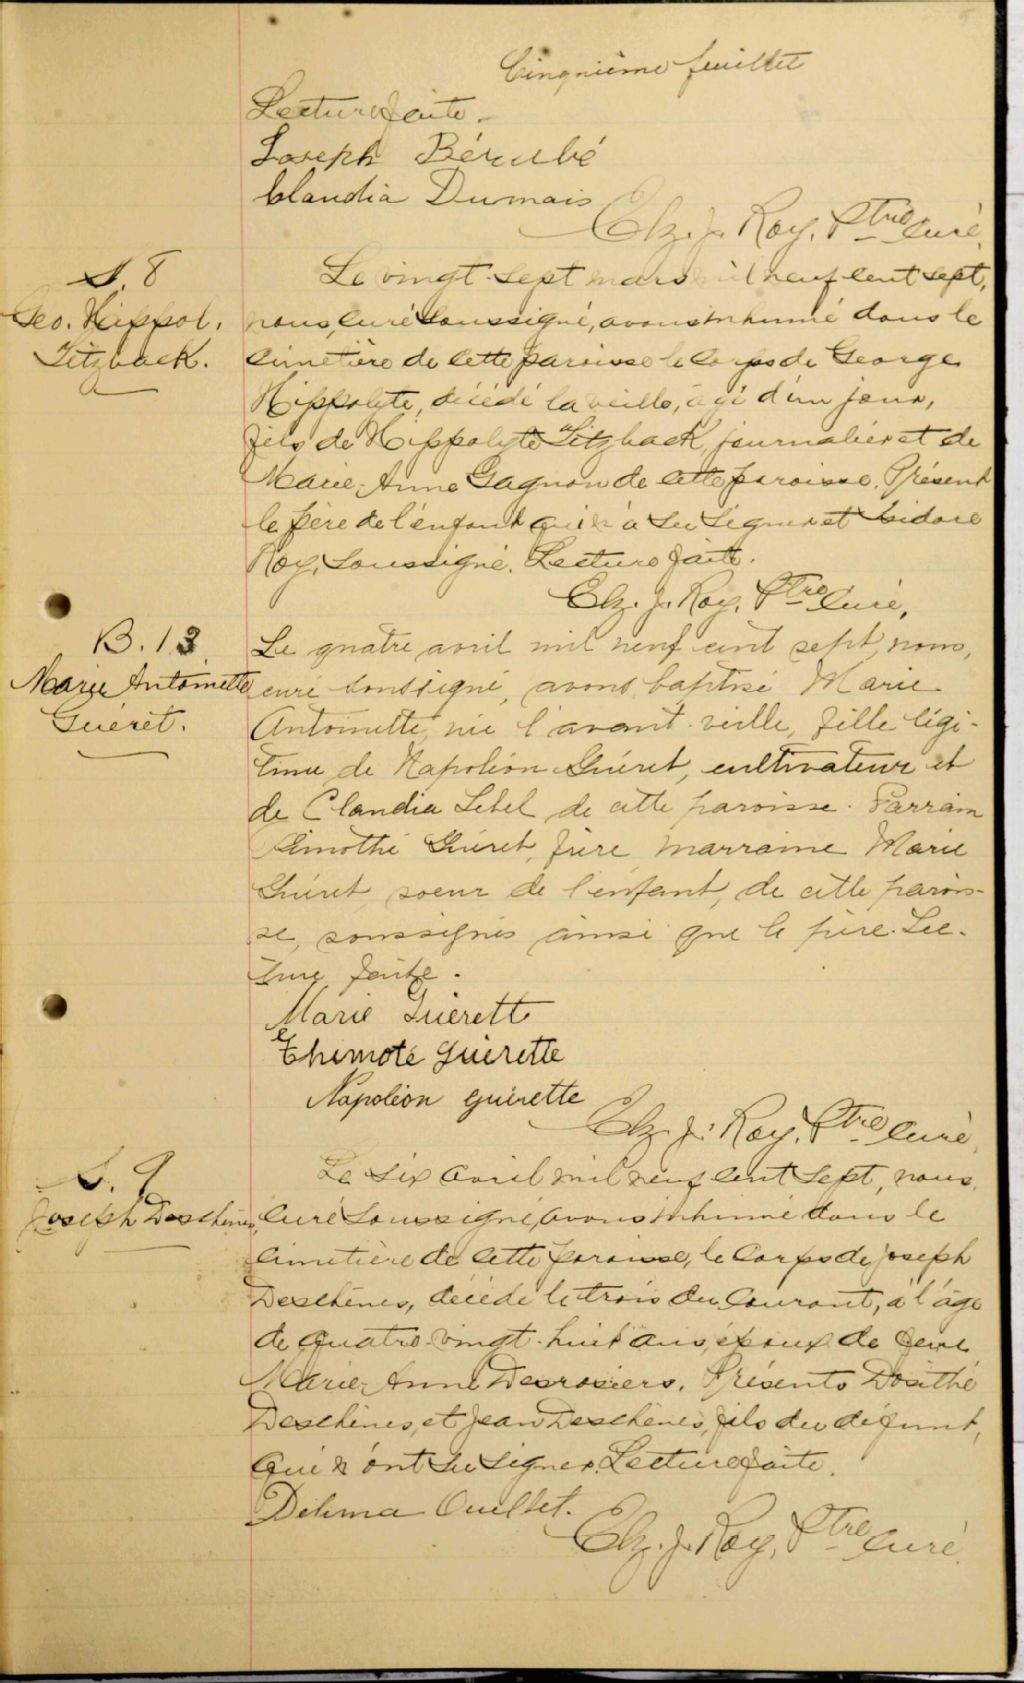 Cinquième feuillet
Lecture faite.
Joseph Bérubé
Claudia Dumais
Elz. J. Roy, Ptre Curé.
S. 8
Geo. Hippol.
Fitzback.
Le vingt-sept mars mil neuf cent sept,
nous, curé soussigné, avons inhumé dans le
cimetière de cette paroisse le corps de George
Hippolyte, décédé la veille, âgé d'un jour,
fils de Hippolyte Fitzback, journalier et de
Marie-Anne Gagnon de cette paroisse. Présent
le père de l'enfant qui n'a su signer et Isidore
Roy, soussigné. Lecture faite.
Elz. J. Roy, Ptre Curé,
B. 13
Marie Antoinette
Guéret.
Le quatre avril mil neuf cent sept, nous,
curé soussigné, avons baptisé Marie
Antoinette, née l'avant-veille, fille légi-
time de Napoléon Guéret, cultivateur et
de Claudia Lebel de cette paroisse. Parrain
Timothé Guéret, frère marraine Marie
Guéret, soeur de l'enfant, de cette parois-
se, soussignés ainsi que le père. Lec-
ture faite.
Marie Guérette
Thimoté Guérette
Napoléon Guérette
Elz. J. Roy, Ptre Curé,
S. 9
Joseph Deschênes
Le six avril mil neuf cent sept, nous,
curé soussigné, avons inhumé dans le
cimetière de cette paroisse, le corps de Joseph
Deschênes, décédé le trois du courant, à l'âge
de quatre-vingt-huit ans, époux de feue
Marie-Anne Desrosiers. Présents Dosithé
Deschênes, et Jean Deschênes, fils du défunt,
qui n'ont su signer. Lecture faite.
Délima Ouellet.
Elz. J. Roy, Ptre Curé.